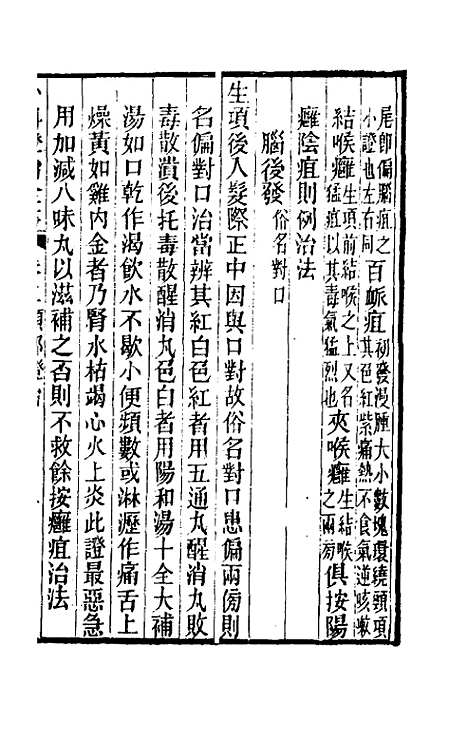 尾即偏腦疽之
小證也左右同百䘑疽初發漫腫大小數塊環繞頸項
其色紅紫痛熱不食氣逆咳嗽
結喉癰生項前結喉之上又名
猛疽以其毒氣猛烈也夾喉癰生結喉
之兩㫄俱按陽
癰陰疽則例治法
腦後發俗名對口
生項後入髮際正中因與口對故俗名對口患偏兩㫄則
名偏對口治當辨其紅白色紅者用五通丸醒消丸敗
毒散潰後托毒散醒消丸色白者用陽和湯十全大補
湯如口乾作渴飲水不歇小便頻數或淋瀝作痛舌上
燥黃如雞內金者乃腎水枯竭心火上炎此證最惡急
用加減八味丸以滋補之否則不救餘按癰疽治法